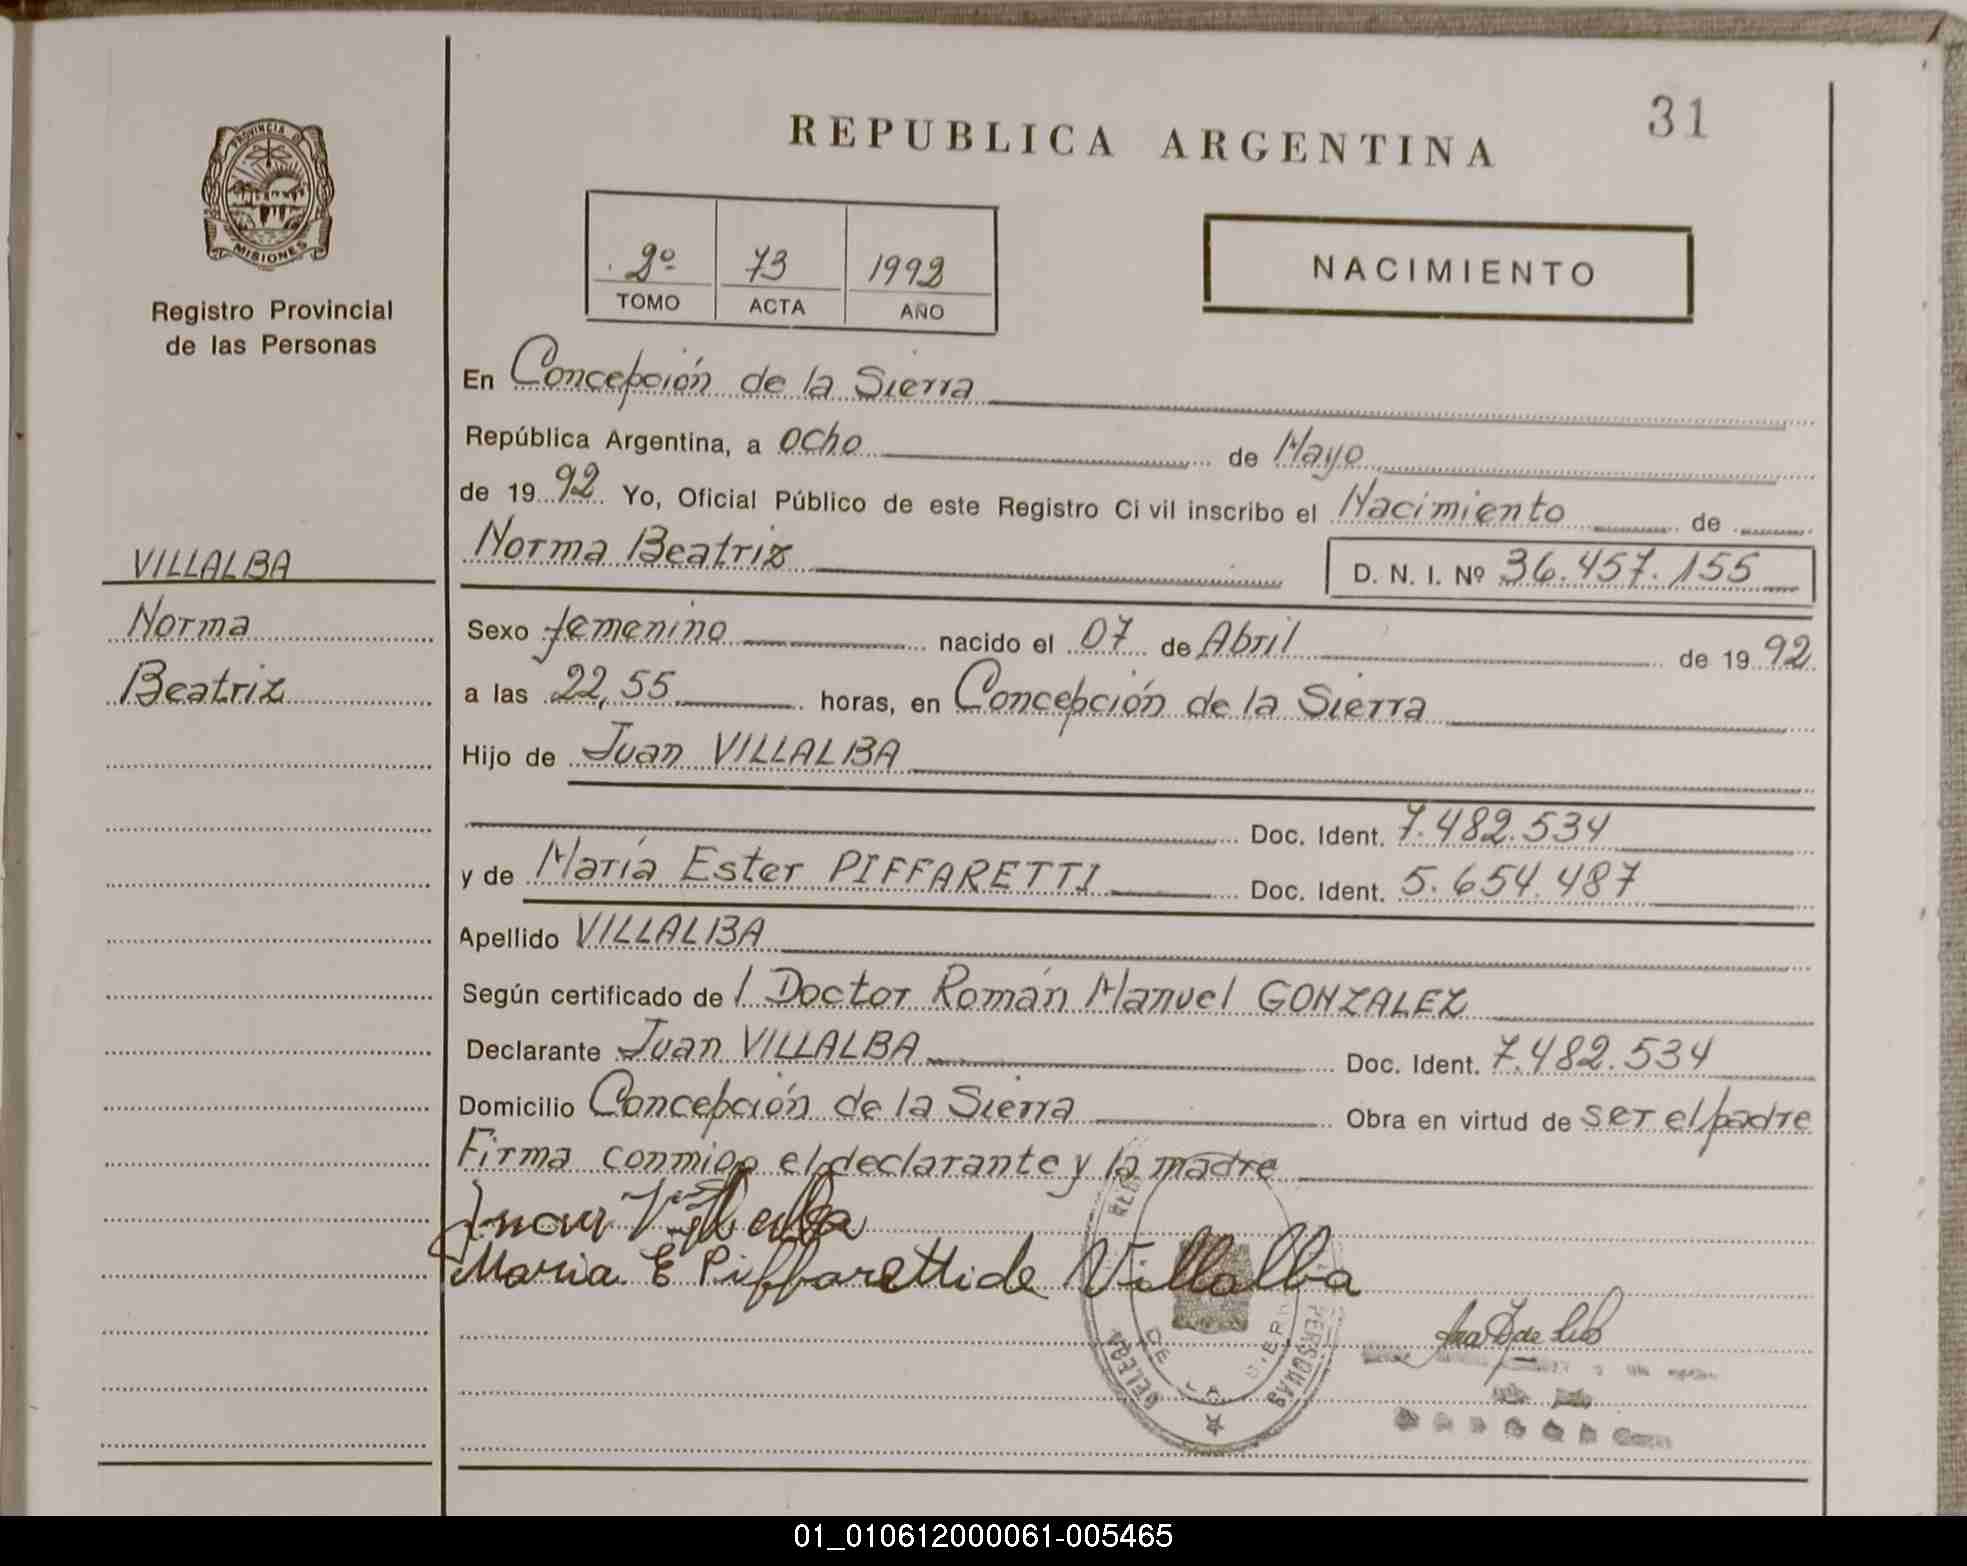 31
REPUBLICA ARGENTINA
PROVINCIA D
MISIONES
Registro Provincial
de las Personas
2º 73 1992
TOMO ACTA AÑO
NACIMIENTO
En Concepción de la Sierra
República Argentina, a ocho de Mayo
de 1992 Yo, Oficial Público de este Registro Civil inscribo el Nacimiento de
Norma Beatriz D. N. I. Nº 36.457.155
VILLALBA
Norma
Beatriz
Sexo femenino nacido el 07 de Abril de 1992
a las 22,55 horas, en Concepción de la Sierra
Hijo de Juan VILLALBA
Doc. Ident. 7.482.534
y de María Ester PIFFARETTI Doc. Ident. 5.654.487
Apellido VILLALBA
Según certificado de l Doctor Román Manuel GONZALEZ
Declarante Juan VILLALBA Doc. Ident. 7.482.534
Domicilio Concepción de la Sierra Obra en virtud de ser el padre
Firma conmigo el declarante y la madre
Juan Villalba
Maria E Piffaretti de Villalba
DE LA SIERR
PERSONAS
01_010612000061-005465